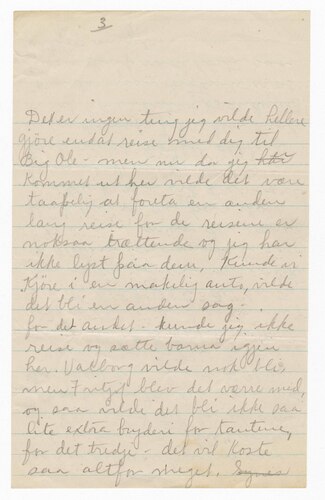 3
Det er ingen ting jeg vilde hellere
gjöre end at reise med dig til
Big Ole - men nu da jeg har
kommet ut her vilde det være
taapelig at foreta en anden
lang reise for de reisene er
noksaa trættende og jeg har
ikke lyst paa dem. Kunde vi
Kjöre i en makelig auto, vilde
det bli en anden sag -
for det andet - kunde jeg ikke
reise og sætte barna igjen
her. Valborg vilde nok bli,
men blev det værre med,
og saa vilde det bli ikke saa
lite extra bryderi for tantene,
for det tredje - det vil koste
saa altfor meget. Synes